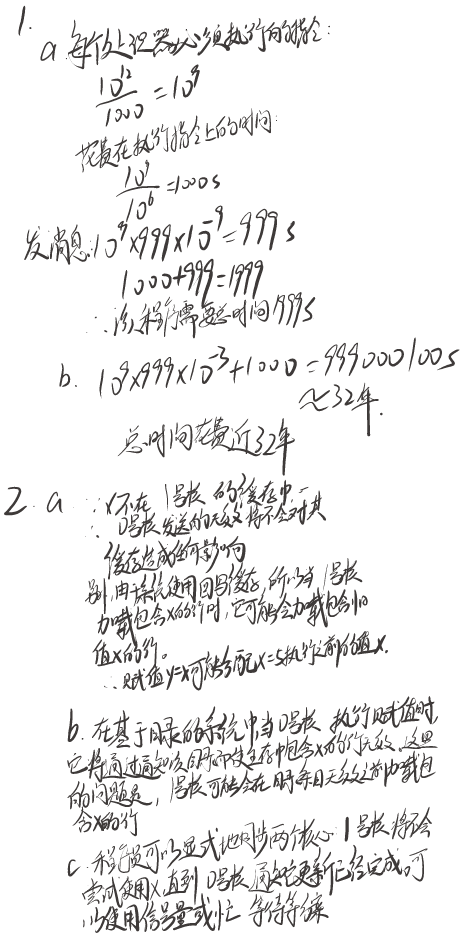 1.
a 每个处理器必须执行的指令:
10^12/1000 = 10^9
花费在执行指令上的时间:
10^9/10^6 = 1000s
发消息:10^9×999×10^-9=999s
1000+999=1999
∴ 该程序需要总时间1999s
b. 10^9×999×10^-3+1000 = 999000100s
≈32年.
总时间花费近32年
2. a ∵ x不在 1号核 的缓存中
∴ 0号核发送的无效将不会对其
缓存造成任何影响
别,由于系统使用回写缓存,所以当 1号核
加载包含x的行时,它可能会加载包含旧
值x的行。
∴ 赋值y=x可能分配x=5执行之前的值x.
b. 在基于目录的系统中当0号核 执行赋值时
它将通过高知该目录而使主存中包含x的行无效,这里
的问题是,1号核可能会在目录条目无效之前加载包
含x的行
c. 程序员可以显式地同步两个核心:1号核将不会
尝试使用x,直到 0号核通知它更新已经完成。可
以使用信号量或忙 等待等